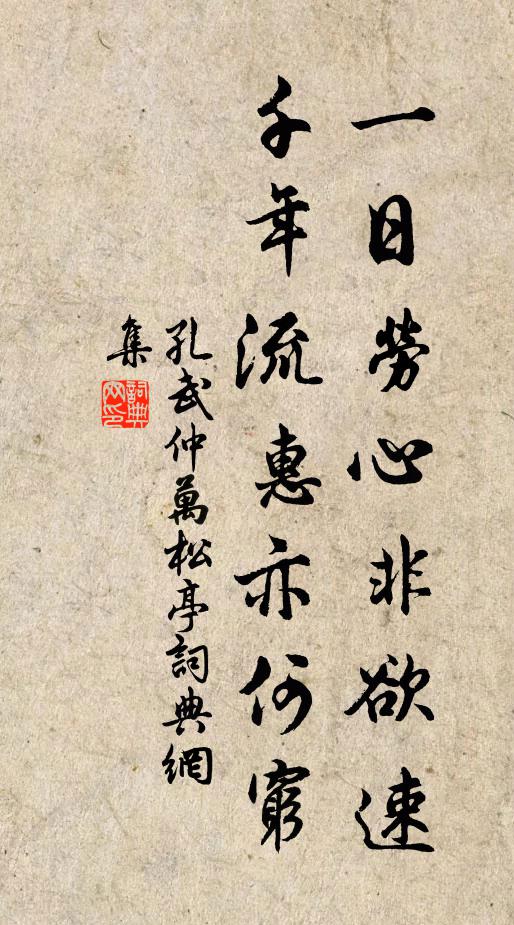 一日勞心非欲速
千年流惠亦何窮
孔武仲萬松亭詞典網
集
詞典
网印